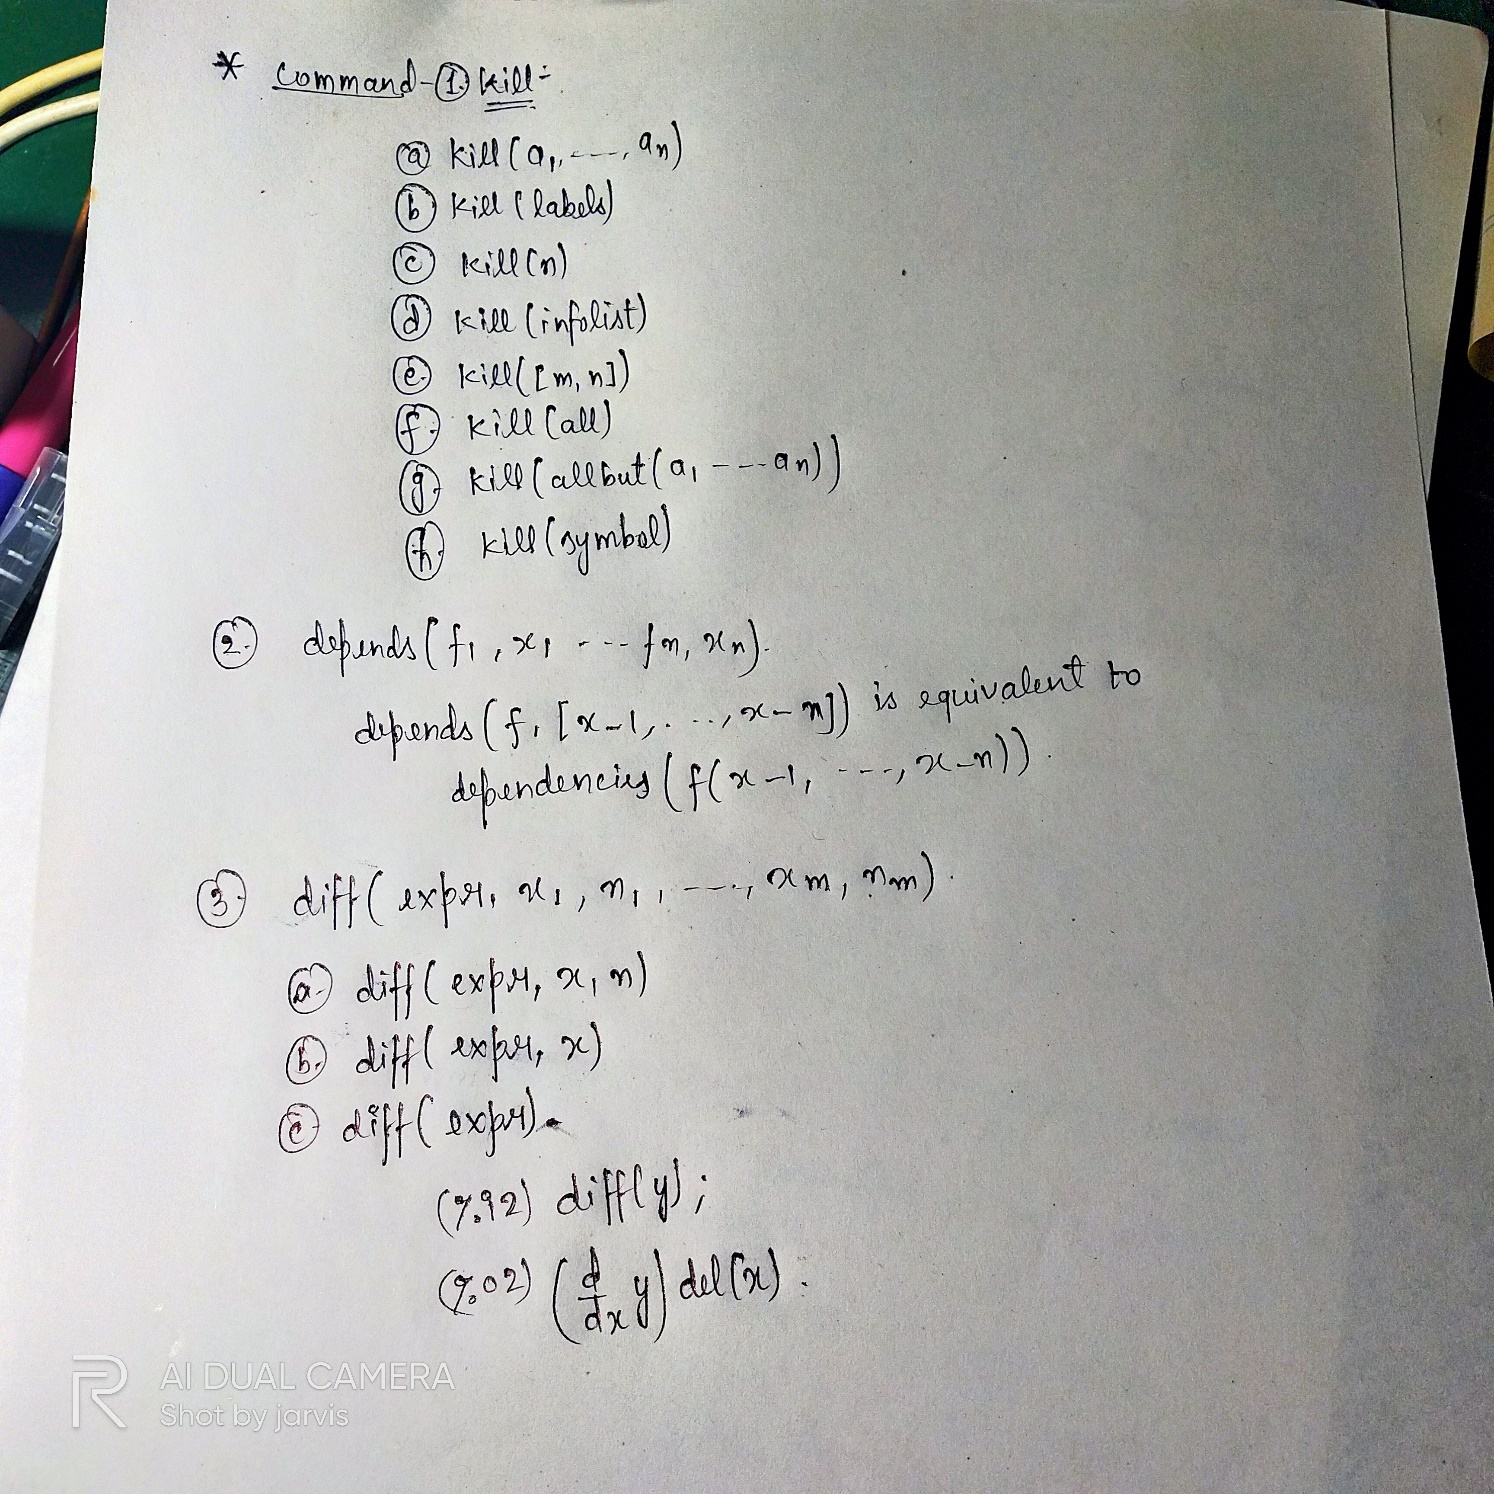 * Command-① Kill:-
ⓐ Kill(a1, ----, an)
ⓑ Kill (labels)
ⓒ Kill(n)
ⓓ Kill (infolist)
ⓔ Kill([m, n])
ⓕ Kill (all)
ⓖ Kill(allbut(a1 ---- an))
ⓗ Kill(symbol)
②. depends(f1, x1 ---- fn, xn).
depends(f, [x-1, ...., x-n]) is equivalent to
dependencies(f(x-1, ----, x-n)).
③. diff(expr, x1, n1, ----, xm, nm).
ⓐ diff(expr, x, n)
ⓑ diff(expr, x)
ⓒ diff(expr).
(%i2) diff(y);
(%o2) (d/dx y) del(x).
AI DUAL CAMERA
Shot by jarvis